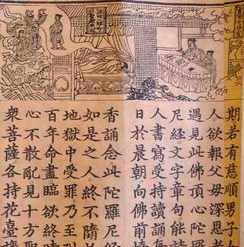 期若有慈順男子
人欲報父母深恩者
遇見此佛頂心陀羅
尼經文字章句能
人書寫受持讀誦每
日於晨朝向佛前燒
香誦念此陀羅尼經
如是之人終不墮於
地獄中受罪乃至
百年命盡臨欲終時
心不散亂見十方
衆菩薩各持花臺